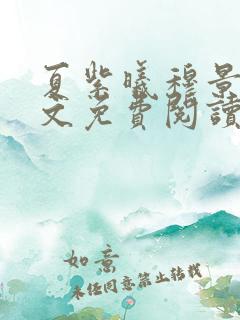 夏紫曦穆景
文免費閱讀
如意
未经同意禁止转载